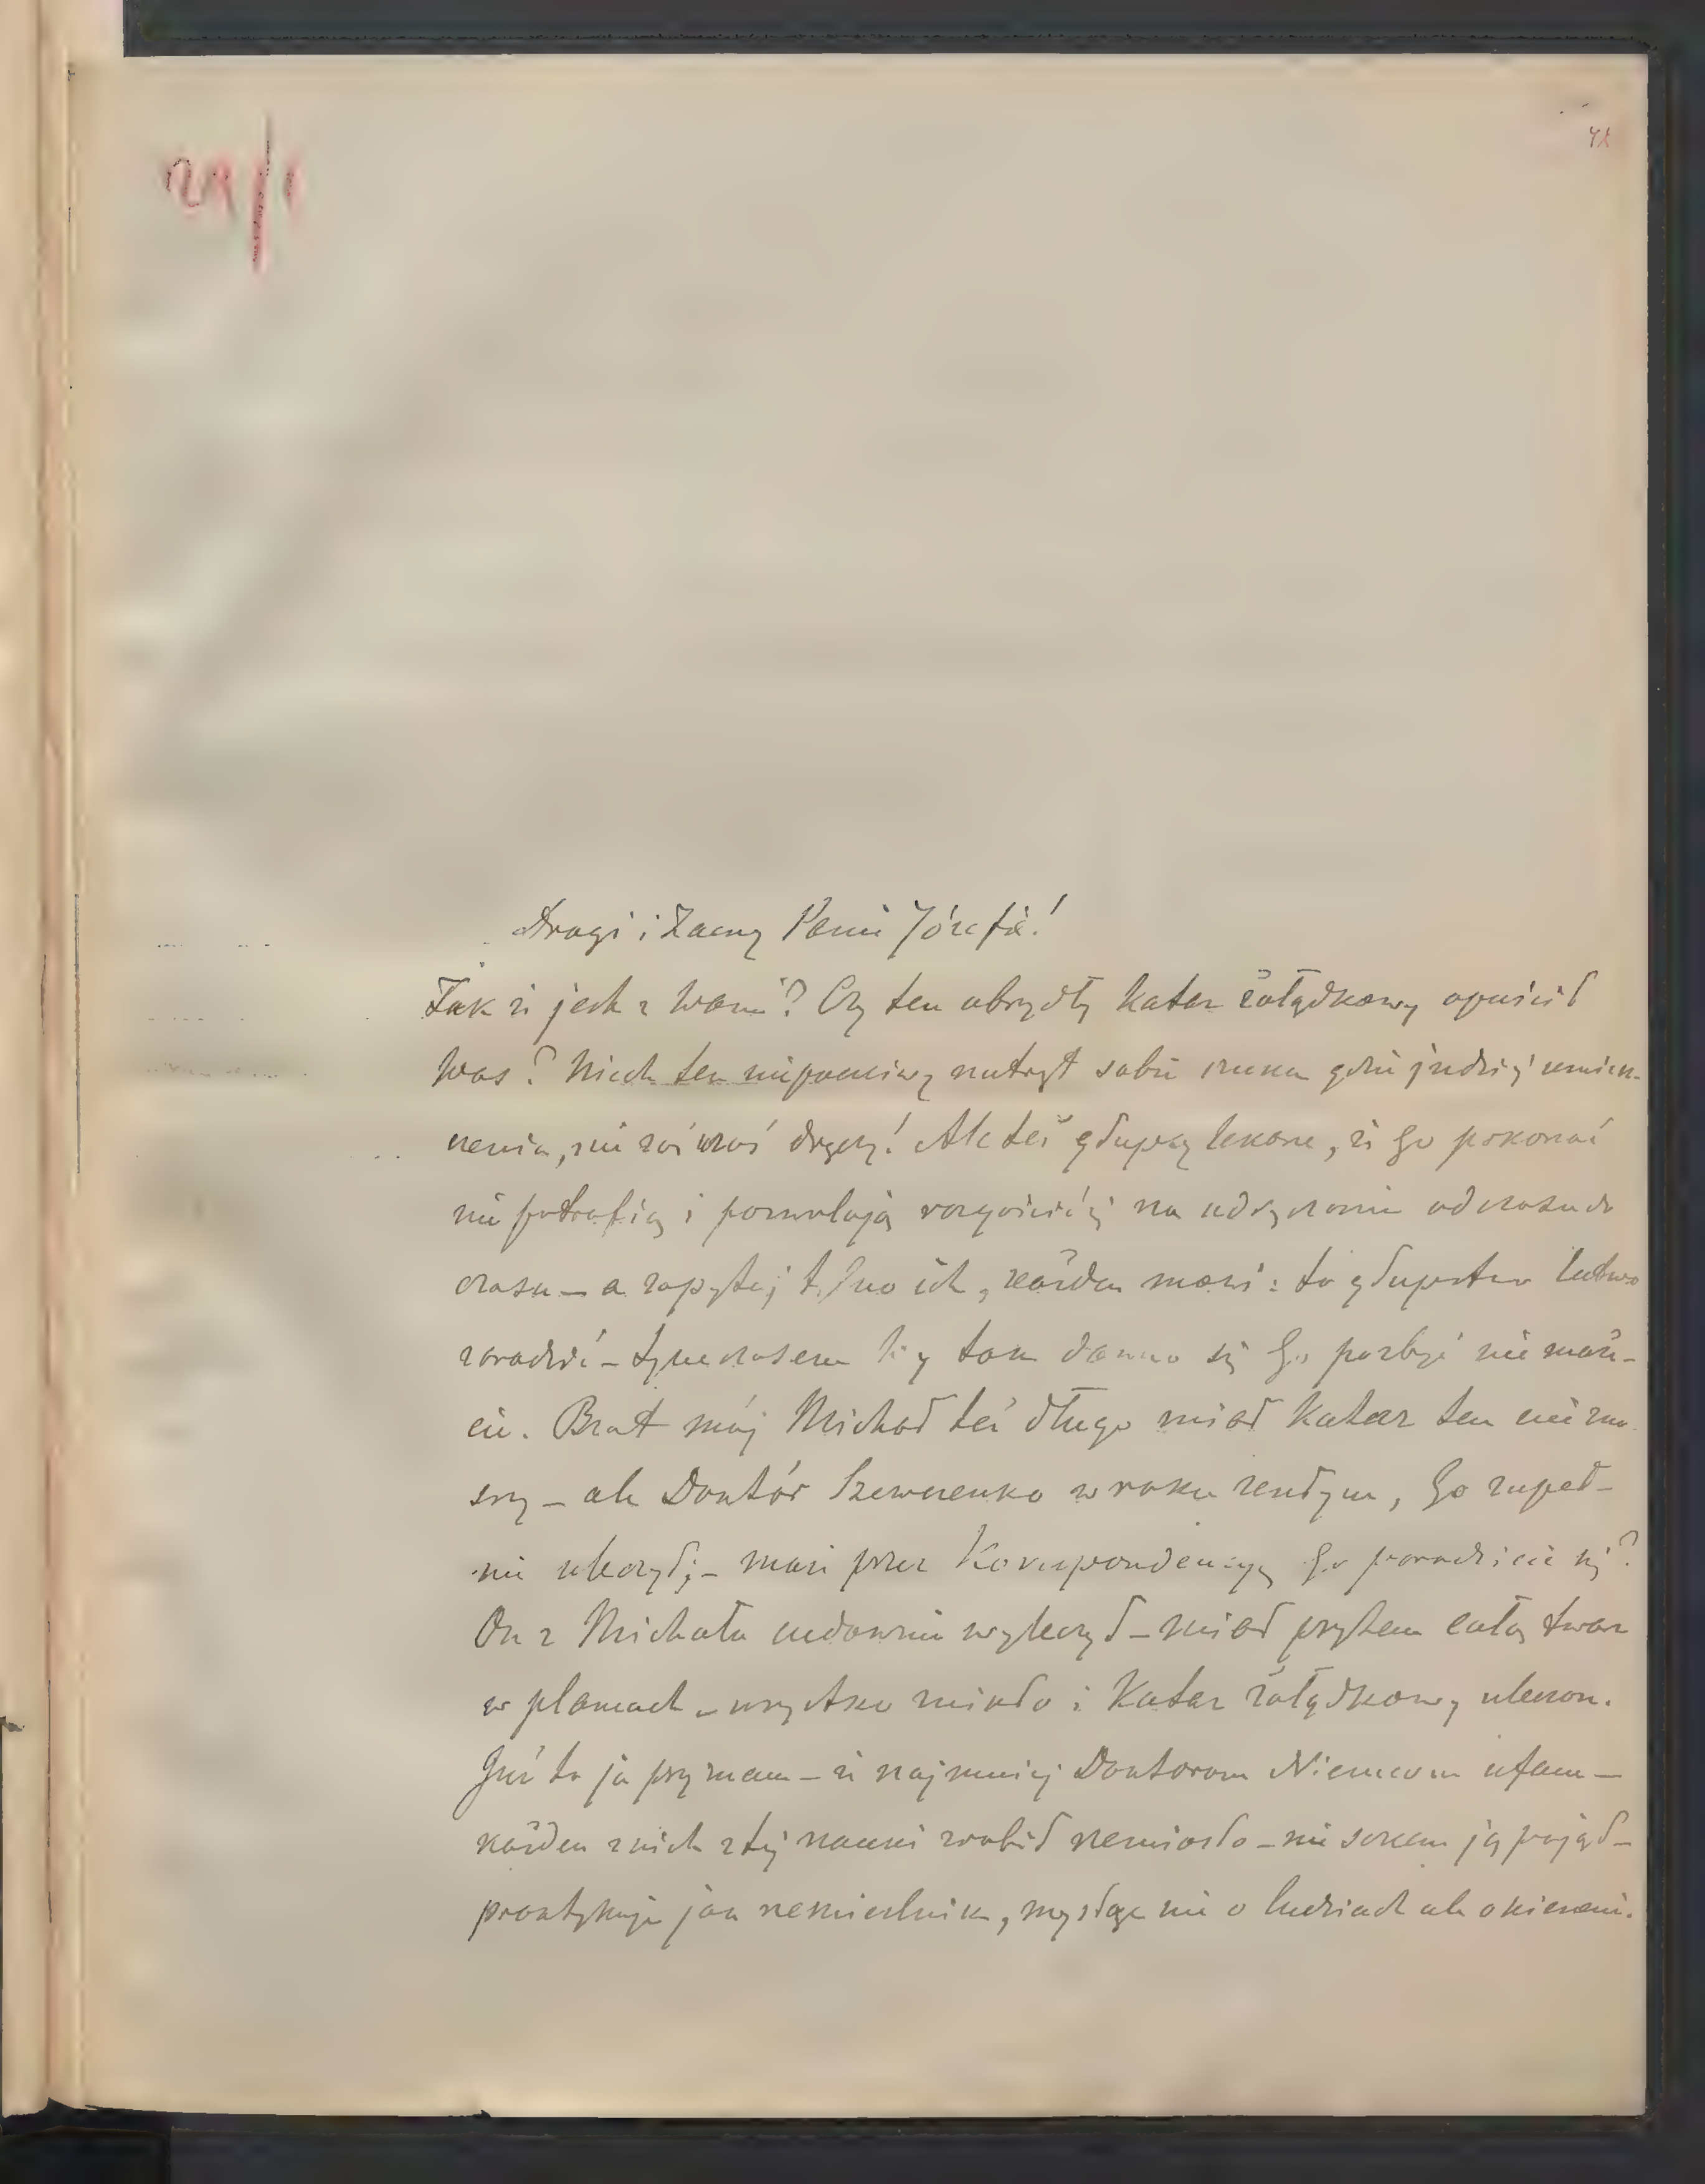 29/1
42
Drogi i Zacny Panie Józefie!
Jak że jest z Wami? Czy ten obrzydły katar żołądkowy opuścił
Was? Niech ten niepoczciwy natręt sobie szuka gdzie
nia, nie zaś Was dręczy! Ale też głupcy lekarze, że go pokonać
nie potrafią i pozwalają rozgościć się na udręczenie od czasu do
czasu – a zapytaj tylko ich, każden mówi: to głupstwo łatwo
zaradzić – tymczasem Wy tak dawno się Go pozbyć nie może-
cie. Brat mój Michał też długo miał Katar ten nie zno
śny – ale Doktór Szewczenko w roku zeszłym, Go zupeł-
nie uleczył; – może przez Korespondencyą Go poradzicie się?
On z Michała cudownie wyleczył – miał przytem całą twarz
w plamach – wszystko minęło i Katar żołądkowy uleczon.
Już to ja przyznam – że najmniej Doktorom Niemcom ufam –
każden z nich z tej nauki zrobił rzemiosło – nie sercem ją pojął –
praktykuje jak rzemieślnik, myśląc nie o ludziach ale o kieszeni.